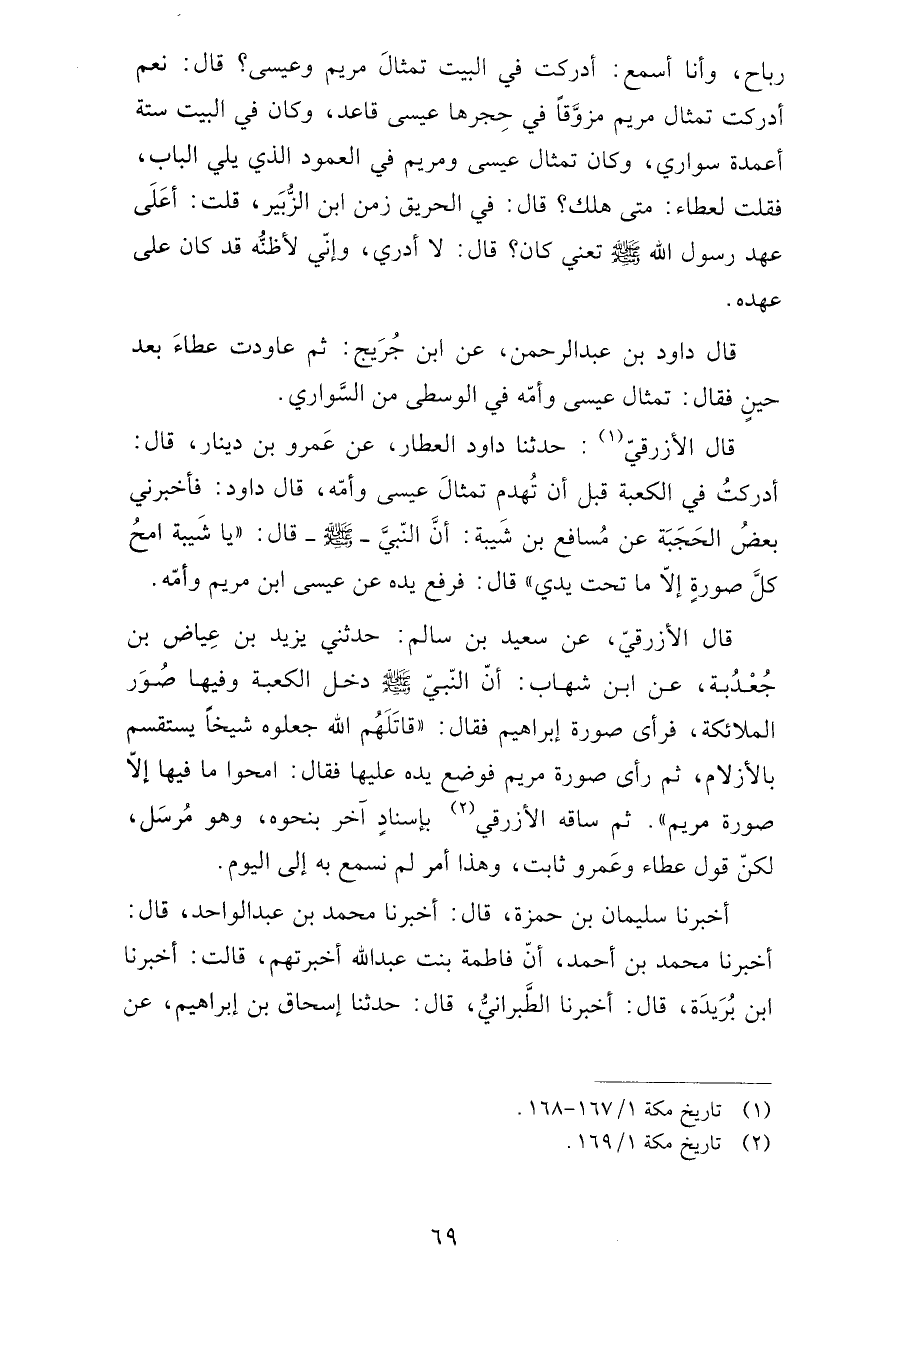 رباح، وأنا أسمع: أدركت في البيت تمثالَ مريم وعيسى؟ قال: نعم
أدركت تمثال مريم مزوَّقاً في حِجرها عيسى قاعد، وكان في البيت ستة
أعمدة سواري، وكان تمثال عيسى ومريم في العمود الذي يلي الباب،
فقلت لعطاء: متى هلك؟ قال: في الحريق زمن ابن الزُّبَير، قلت: أعَلَى
عهد رسول الله ﷺ تعني كان؟ قال: لا أدري، وإنّي لأظنُّه قد كان على
عهده.
قال داود بن عبدالرحمن، عن ابن جُرَيج: ثم عاودت عطاءَ بعد
حينٍ فقال: تمثال عيسى وأمّه في الوسطى من السَّواري.
قال الأزرقيّ(١) : حدثنا داود العطار، عن عَمرو بن دينار، قال:
أدركتُ في الكعبة قبل أن تُهدم تمثالَ عيسى وأمّه، قال داود: فأخبرني
بعضُ الحَجَبَة عن مُسافع بن شَيبة: أنَّ النّبيَّ ـ ﷺ ـ قال: «يا شَيبة امحُ
كلَّ صورةٍ إلاّ ما تحت يدي» قال: فرفع يده عن عيسى ابن مريم وأمّه.
قال الأزرقيّ، عن سعيد بن سالم: حدثني يزيد بن عِياض بن
جُعْدُبة، عن ابن شهاب: أنّ النّبيّ ﷺ دخل الكعبة وفيها صُوَر
الملائكة، فرأى صورة إبراهيم فقال: «قاتَلَهُم الله جعلوه شيخاً يستقسم
بالأزلام، ثم رأى صورة مريم فوضع يده عليها فقال: امحوا ما فيها إلاّ
صورة مريم». ثم ساقه الأزرقي(٢) بإسنادٍ آخر بنحوه، وهو مُرسَل،
لكنّ قول عطاء وعَمرو ثابت، وهذا أمر لم نسمع به إلى اليوم.
أخبرنا سليمان بن حمزة، قال: أخبرنا محمد بن عبدالواحد، قال:
أخبرنا محمد بن أحمد، أنّ فاطمة بنت عبدالله أخبرتهم، قالت: أخبرنا
ابن بُرَيدَة، قال: أخبرنا الطَّبرانيُّ، قال: حدثنا إسحاق بن إبراهيم، عن
(١) تاريخ مكة ١/ ١٦٧-١٦٨.
(٢) تاريخ مكة ١/ ١٦٩.
٦٩